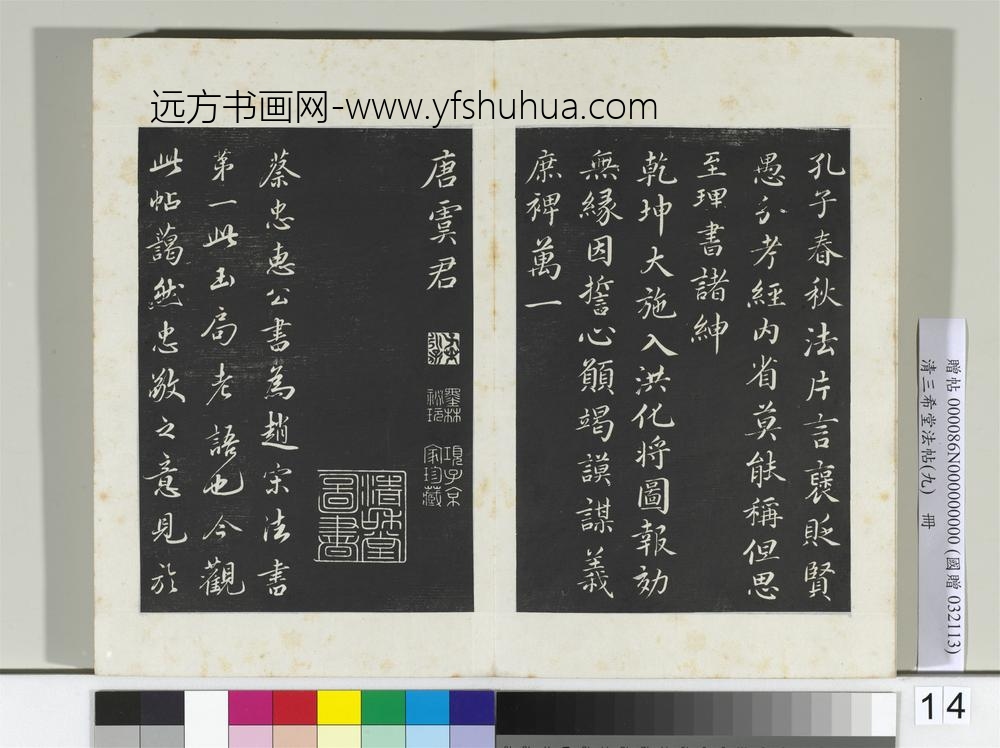 远方书画网-www.yfshuhua.com
孔子春秋法片言襃貶賢
愚分考經內省莫能稱但思
至理書諸紳
乾坤大施入洪化將圖報効
無緣因誓心願竭謨謀義
庶裨萬一
唐虞君
墨林
祕玩
項子京
家珍藏
蔡忠惠公書為趙宋法書
第一此玉局老語也今觀
此帖藹然忠敬之意見於
贈帖 000086N000000000 (國贈 032113)
清三希堂法帖(九) 冊
14